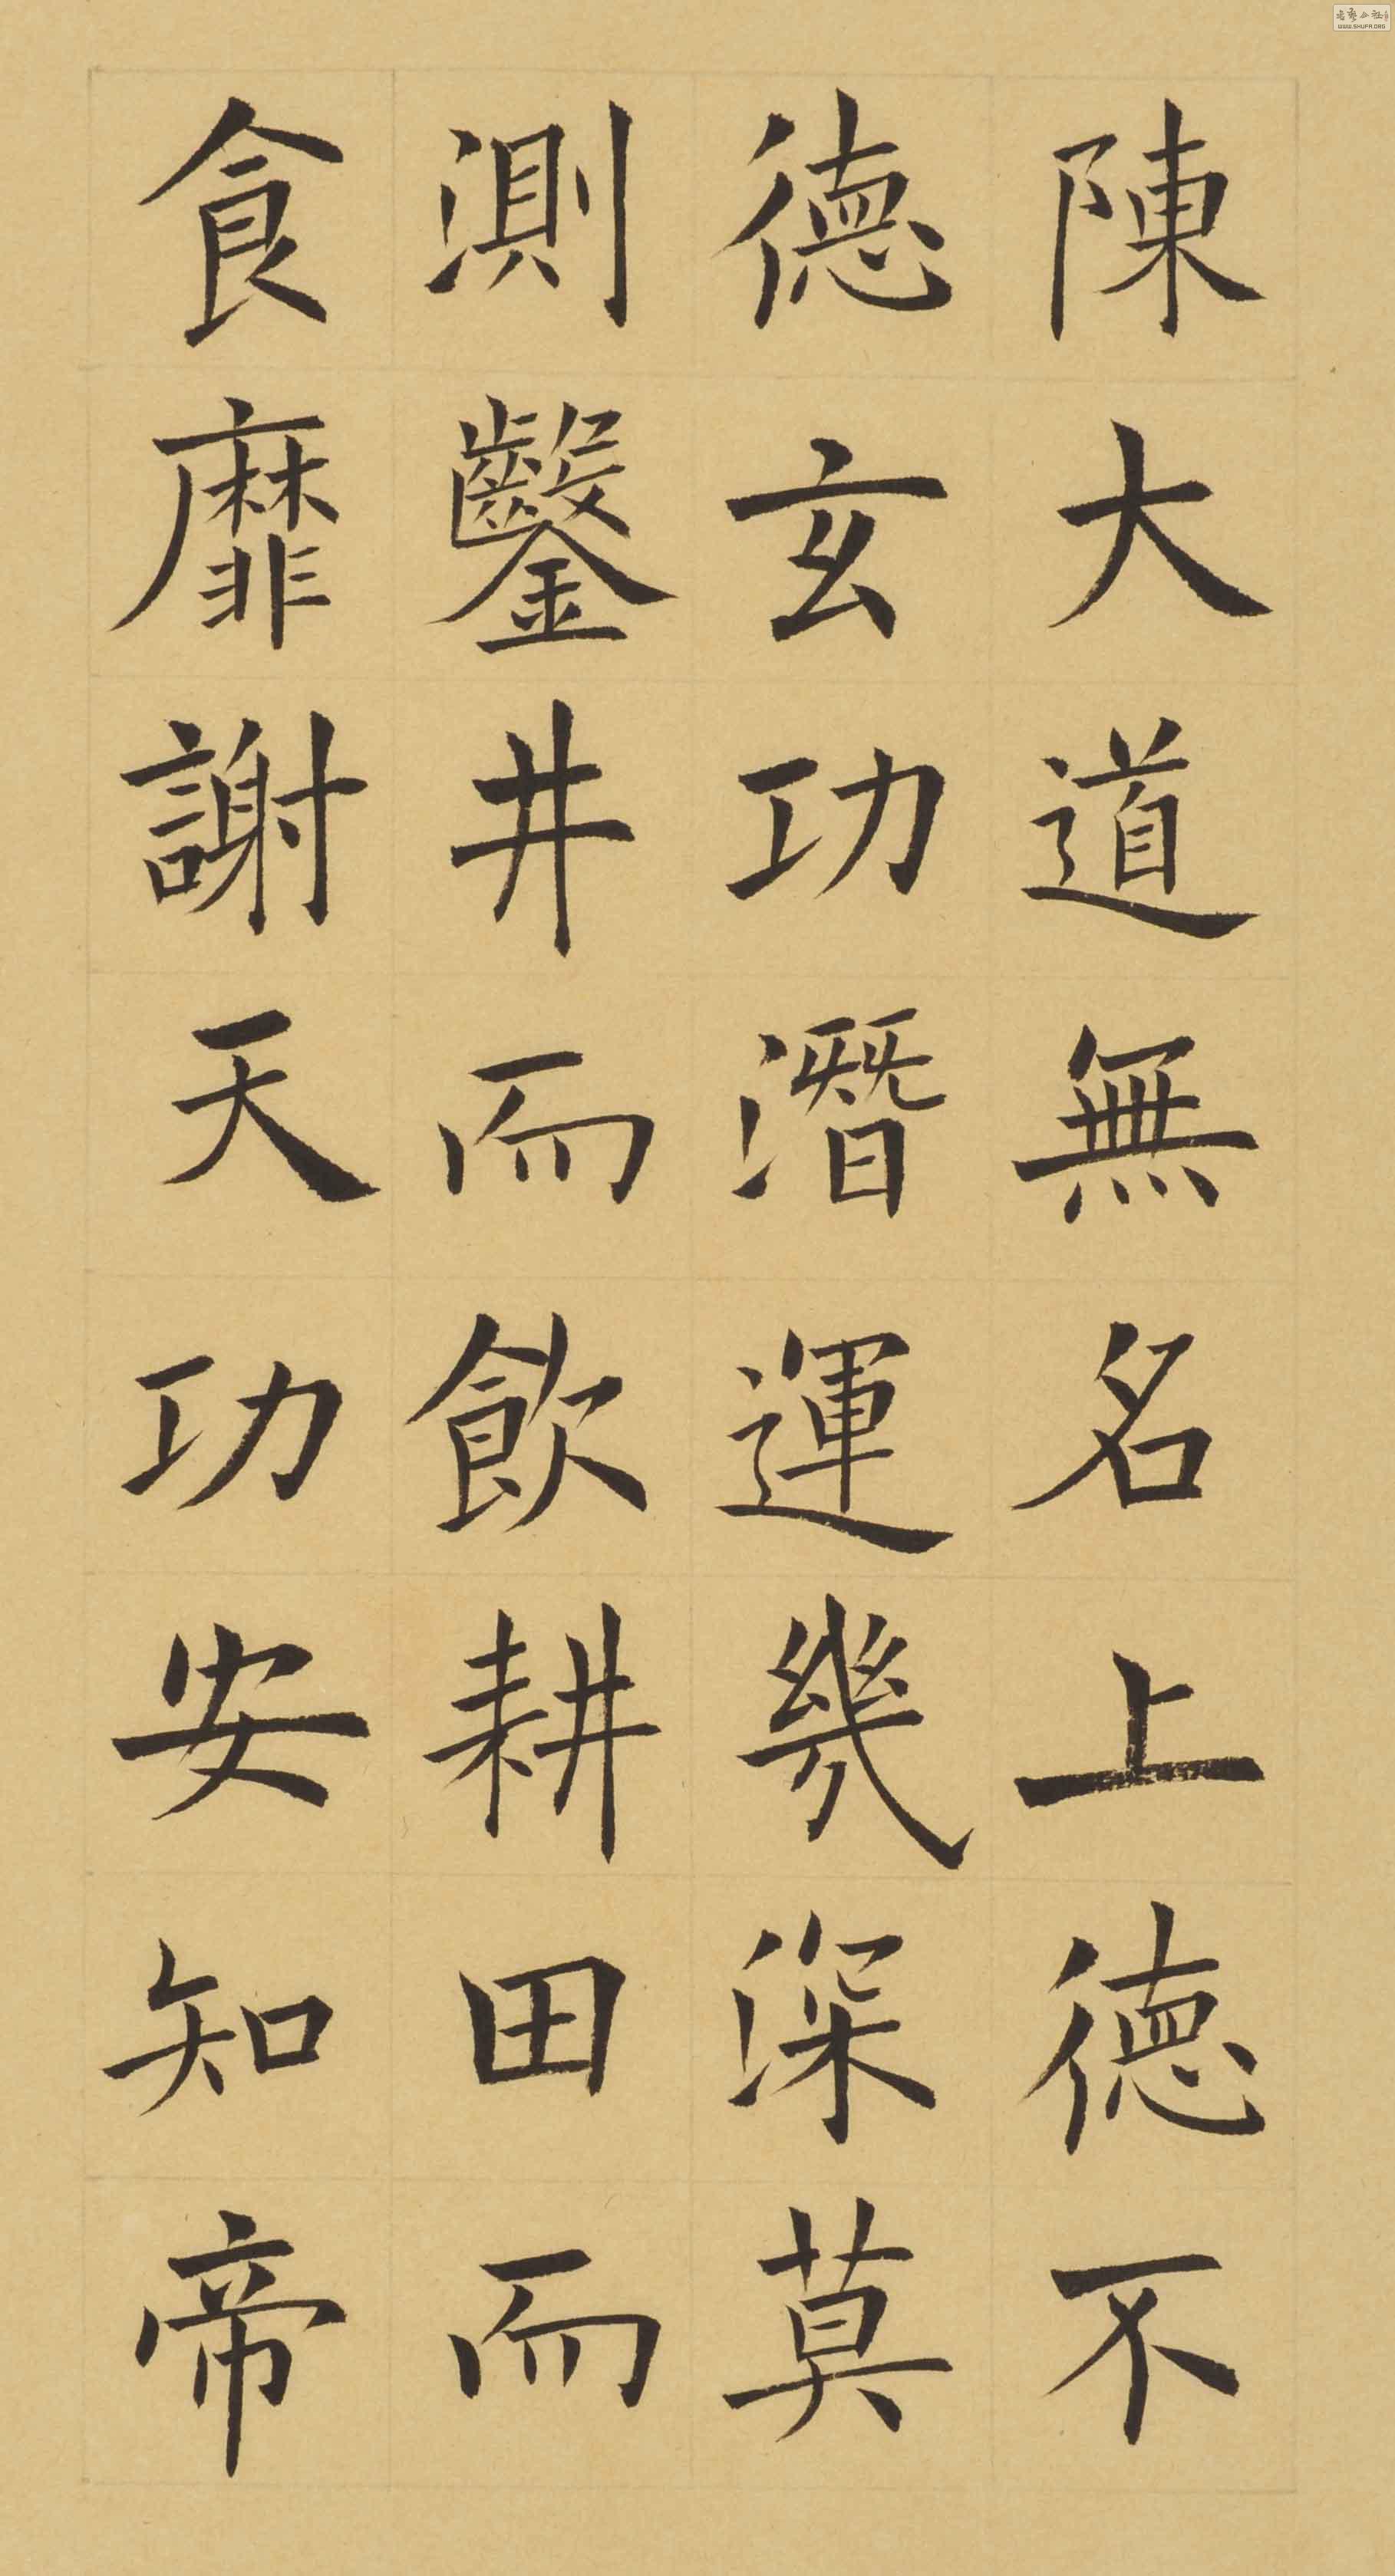 陳大道無名上德不
德玄功潛運幾深莫
測鑿井而飲耕田而
食靡謝天功安知帝
WWW.SHUFA.ORG